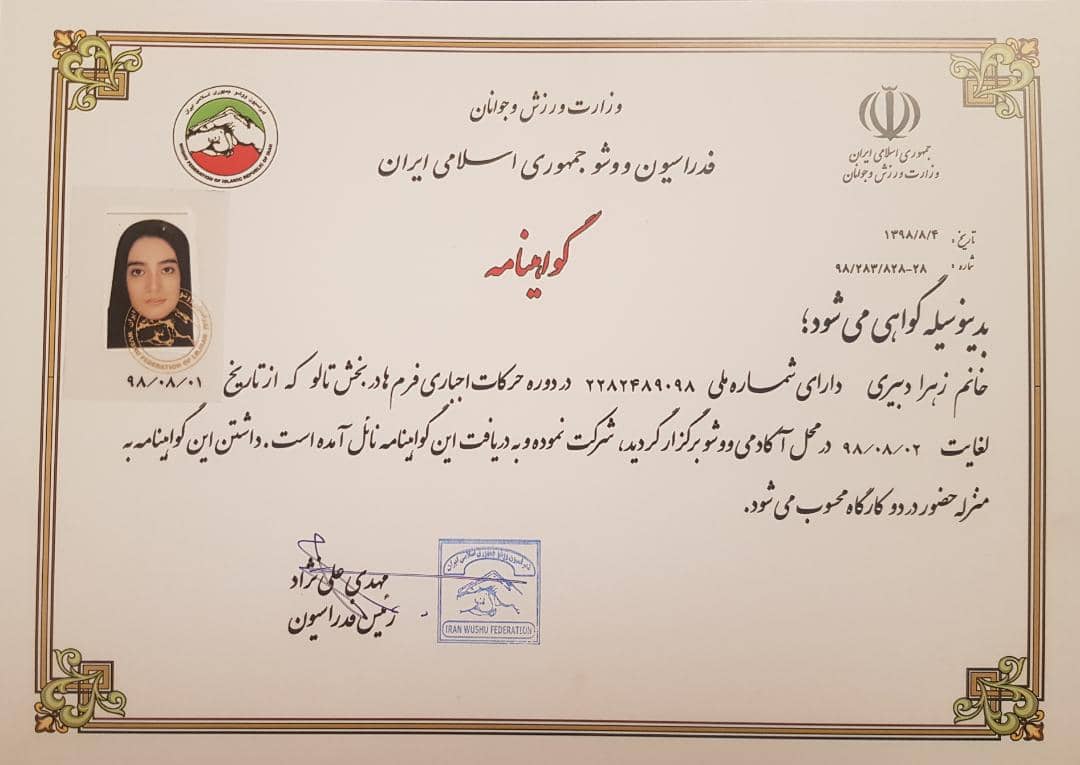 وزارت ورزش و جوانان
فدراسیون ووشو جمهوری اسلامی ایران
جمهوری اسلامی ایران
وزارت ورزش و جوانان
فدراسیون ووشو جمهوری اسلامی ایران
WUSHU FEDERATION OF ISLAMIC REPUBLIC OF IRAN
تاریخ: ۱۳۹۸/۸/۴
شماره: ۹۸/۲۸۳/۸۲۸-۲۸
گواهینامه
بدینوسیله گواهی می شود؛
خانم زهرا دبیری دارای شماره ملی ۲۲۸۲۴۸۹۰۹۸ در دوره حرکات اجباری فرم ها در بخش تالو که از تاریخ ۹۸/۰۸/۰۱
لغایت ۹۸/۰۸/۰۲ در محل آکادمی ووشو برگزار گردید، شرکت نموده و به دریافت این گواهینامه نائل آمده است. داشتن این گواهینامه به
منزله حضور در دو کارگاه محسوب می شود.
مهدی علی نژاد
رئیس فدراسیون
فدراسیون ووشو جمهوری اسلامی ایران
IRAN WUSHU FEDERATION